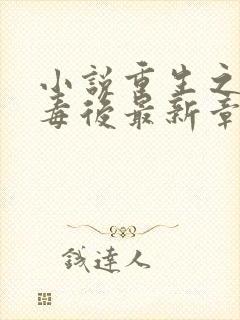 小說重生之
毒後最新章
錢達人